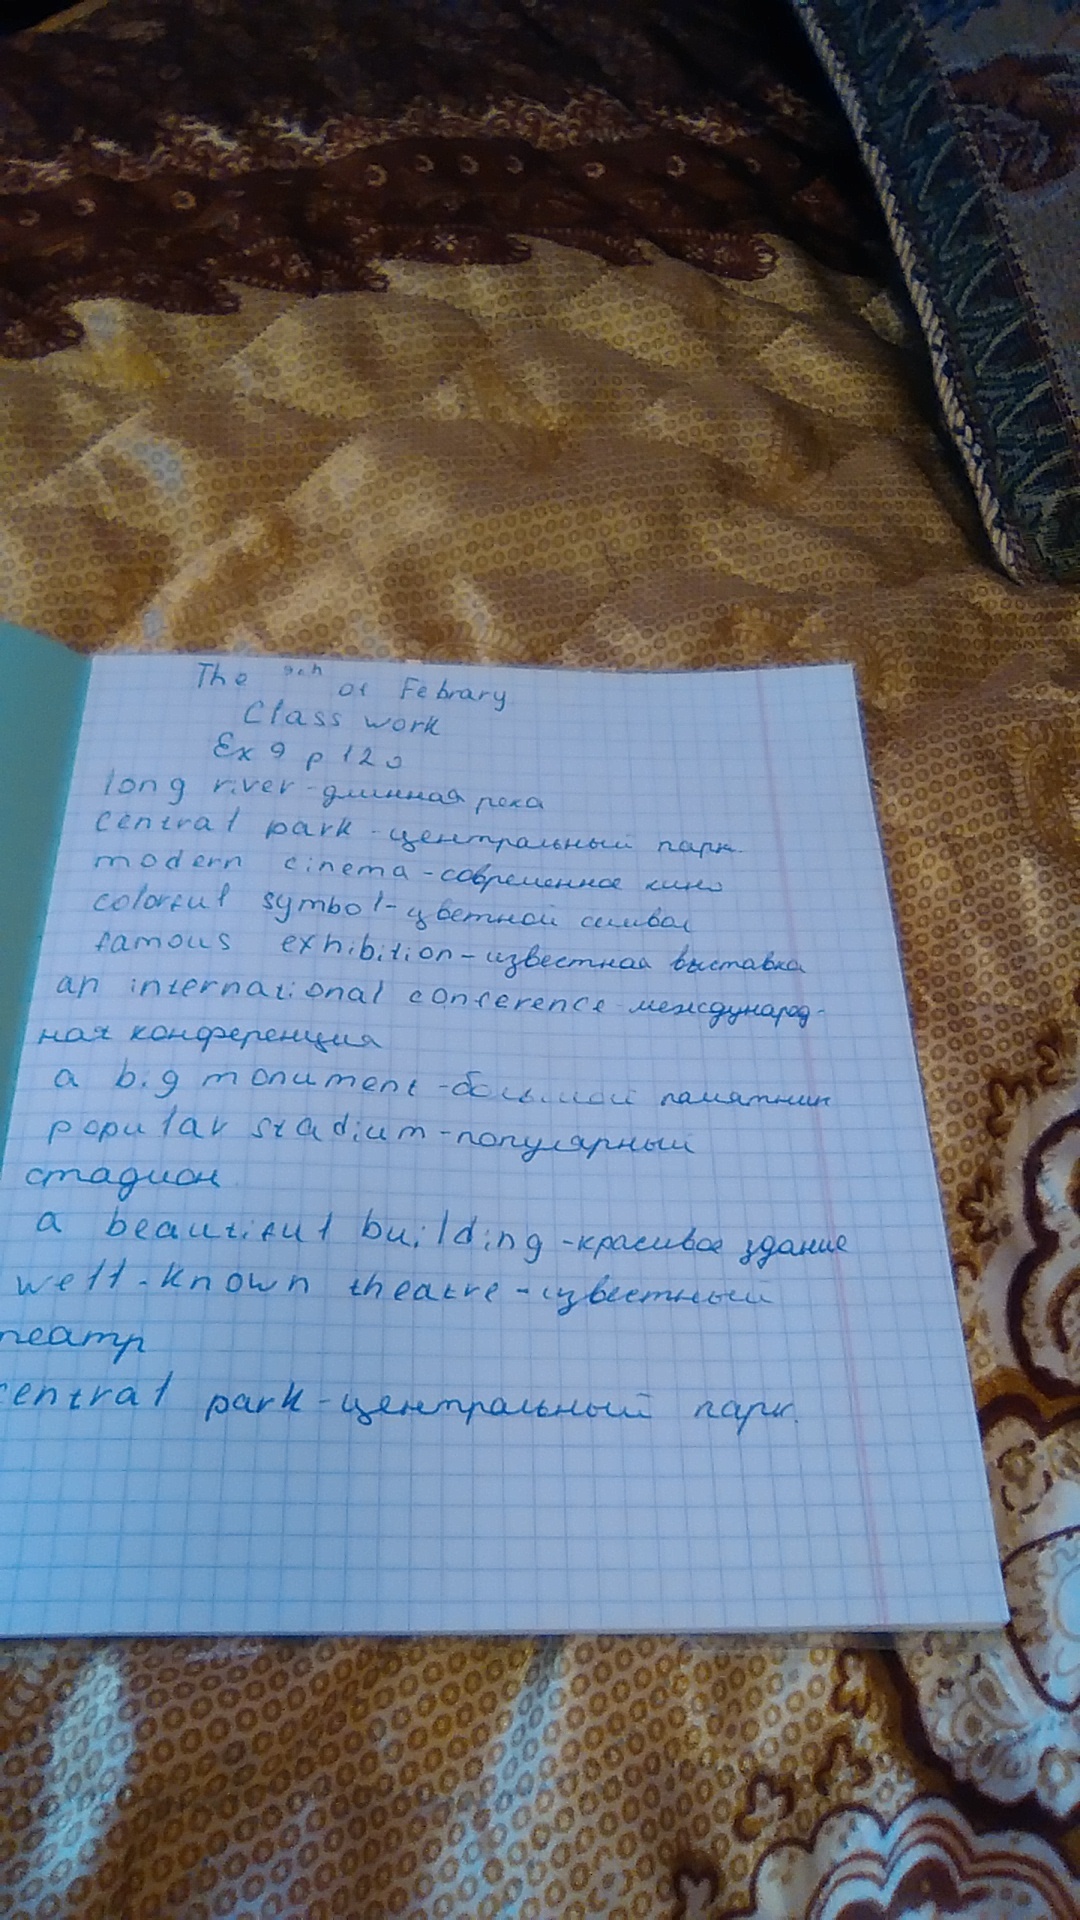 The 9th of Febrary
Class work
Ex 9 p 120
long river - длинная река
central park - центральный парк.
modern cinema - современное кино
colorful symbol - цветной символ
famous exhibition - известная выставка
an international conference - международ-
ная конференция
a big monument - большой памятник
popular stadium - популярный
стадион
a beautiful building - красивое здание
well-known theatre - известный
театр
central park - центральный парк.